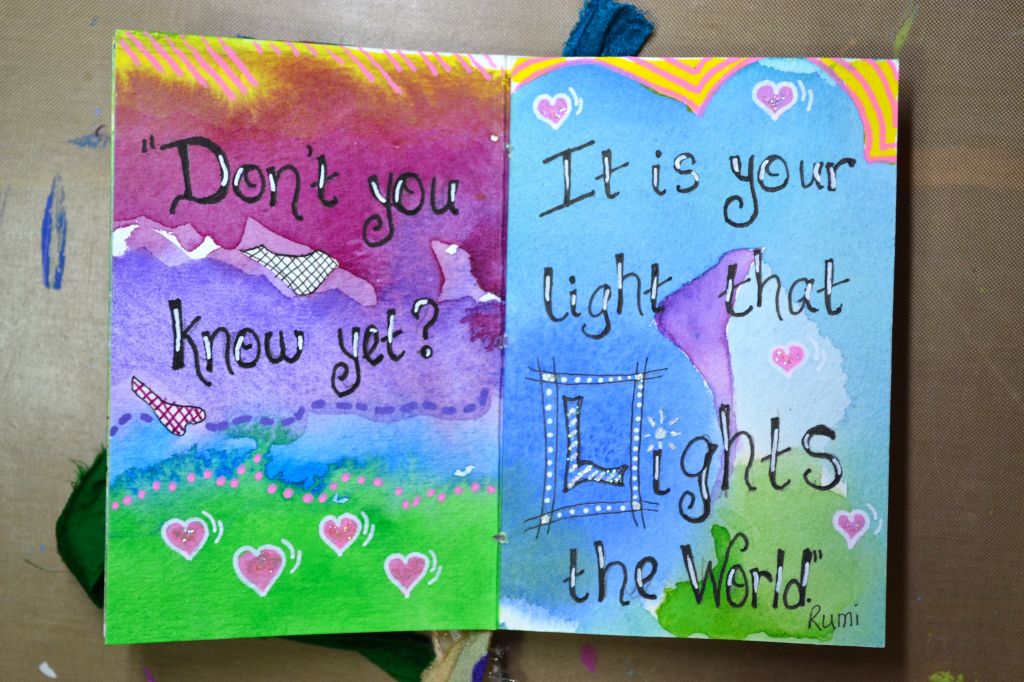 "Don't you
know yet?
It is your
light that
Lights
the World."
Rumi